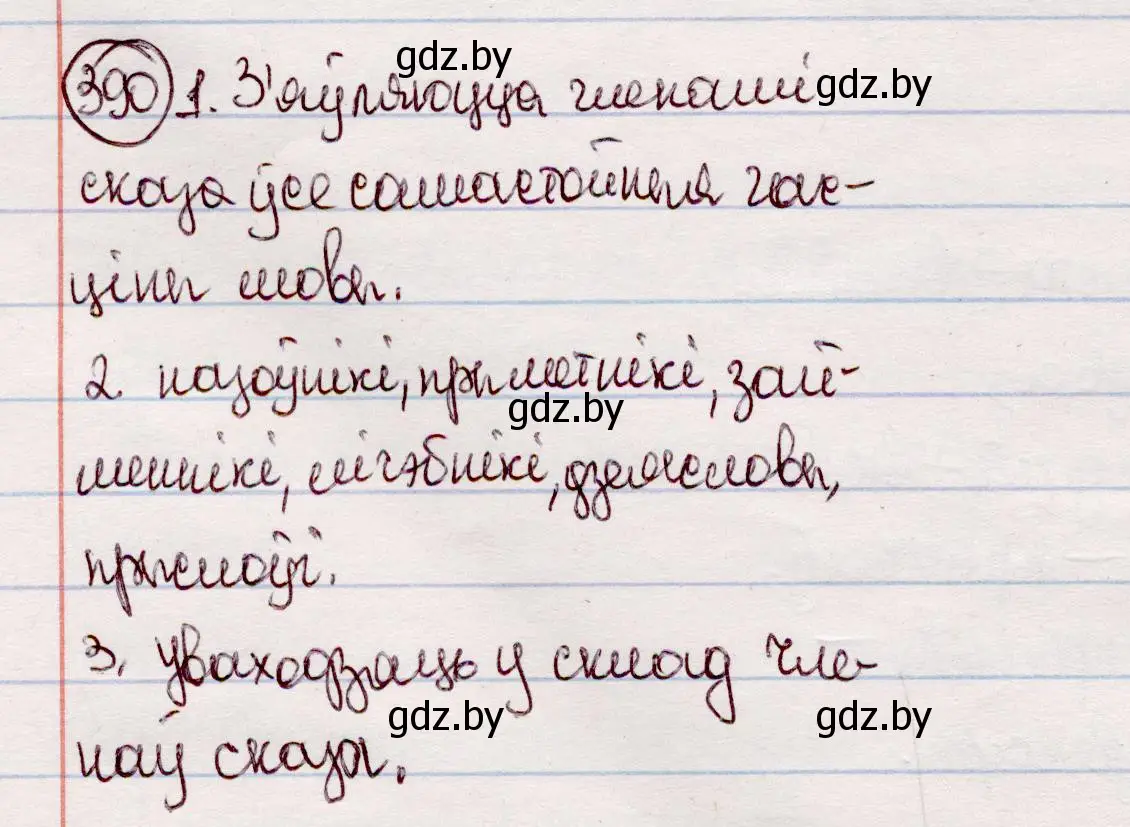 390 1. З'яўляюцца членамі
сказа ўсе самастойныя час-
ціны мовы.
2. назоўнікі, прыметнікі, зай-
меннікі, лічэбнікі, дзеясловы,
прыслоўі.
3. Уваходзяць у склад чле-
наў сказы.
gdz.by
gdz.by
gdz.by
gdz.by
gdz.by